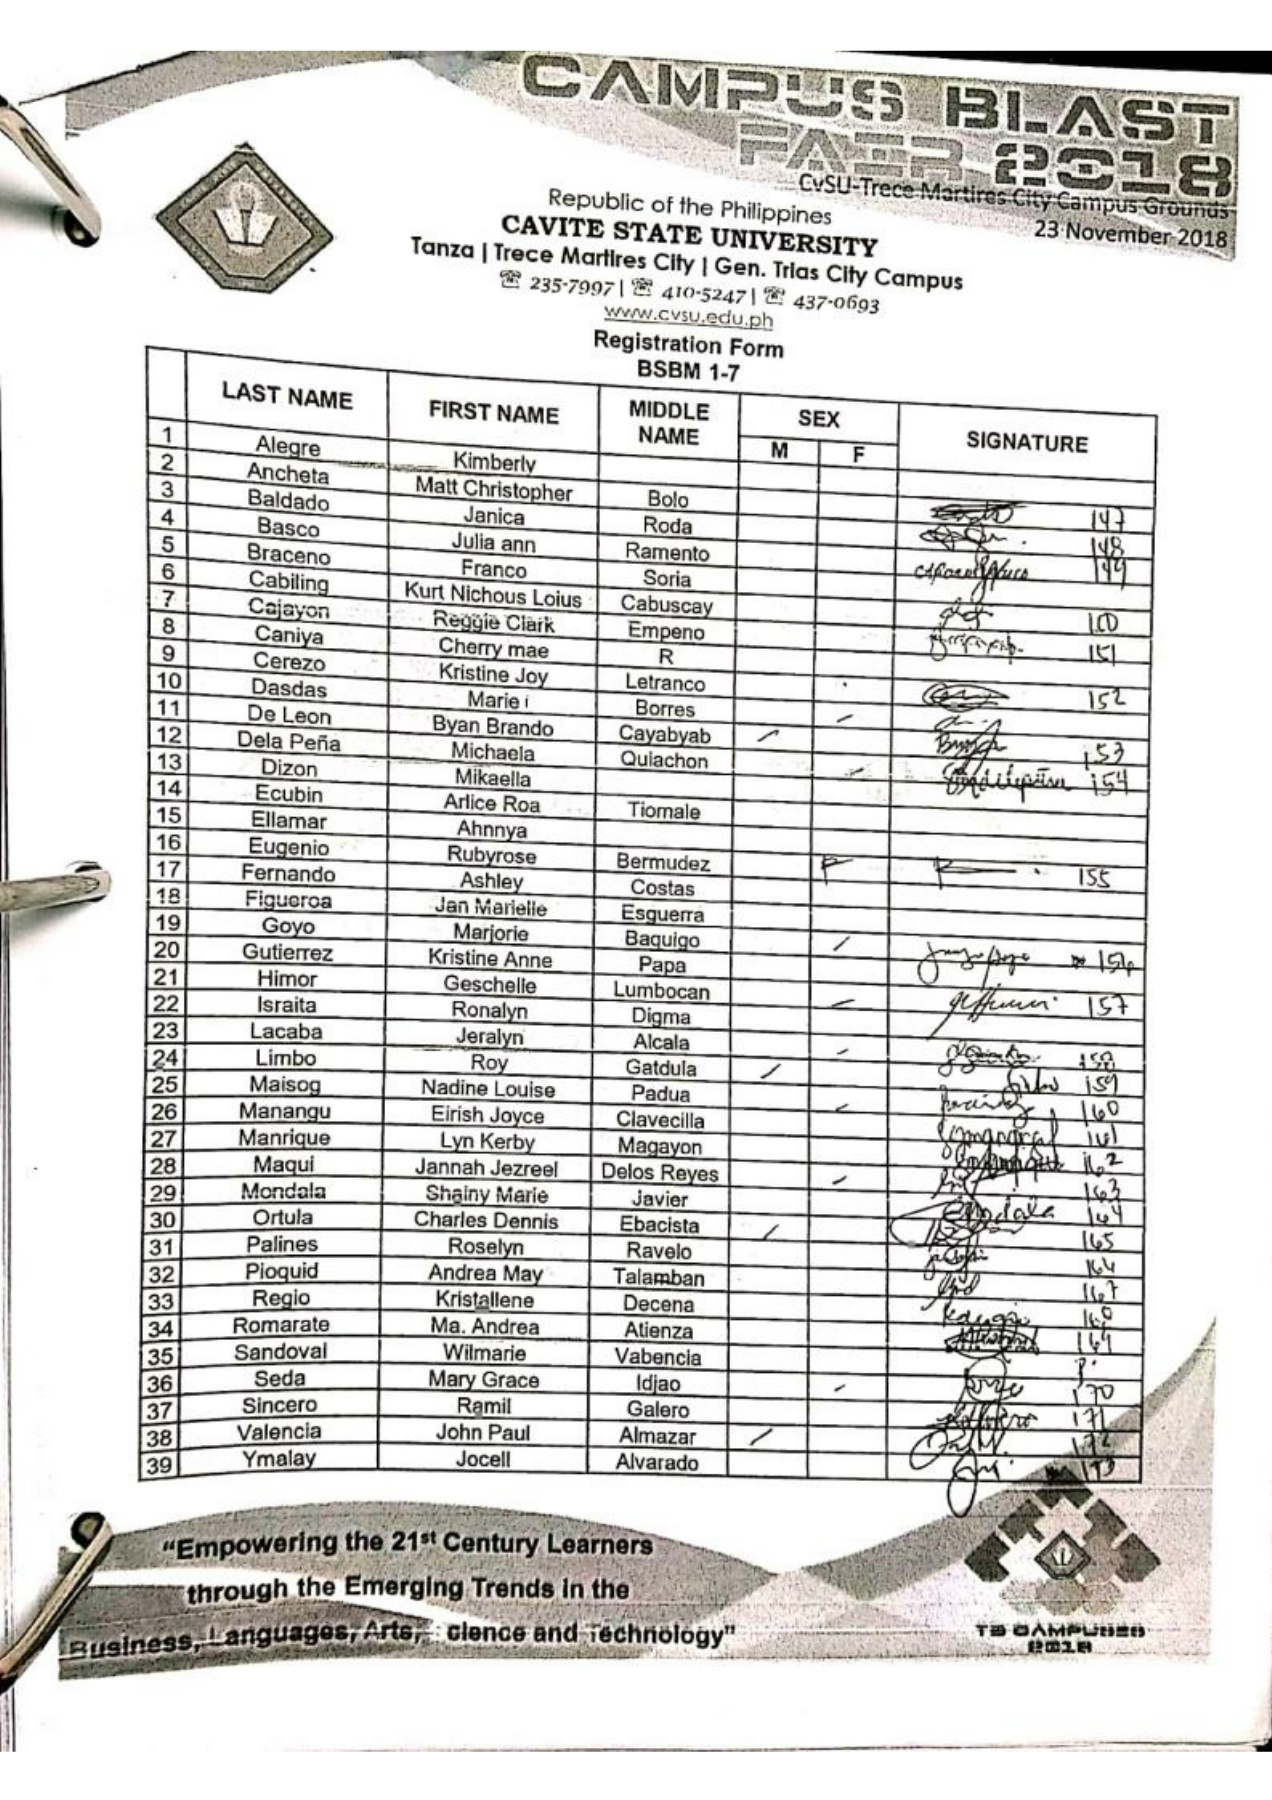 CAMPUS BLAST
FAIR 2018
CvSU-Trece Martires City Campus Grounds
23 November 2018
Republic of the Philippines
CAVITE STATE UNIVERSITY
Tanza | Trece Martires City | Gen. Trias City Campus
☏ 235-7997 | ☏ 410-5247 | ☏ 437-0693
www.cvsu.edu.ph
Registration Form
BSBM 1-7
LAST NAME FIRST NAME MIDDLE NAME SEX SIGNATURE
M F
1 Alegre Kimberly
2 Ancheta Matt Christopher Bolo 147
3 Baldado Janica Roda 148
4 Basco Julia ann Ramento 149
5 Braceno Franco Soria
6 Cabiling Kurt Nichous Loius Cabuscay 150
7 Cajayon Reggie Clark Empeno 151
8 Caniya Cherry mae R
9 Cerezo Kristine Joy Letranco 152
10 Dasdas Marie i Borres
11 De Leon Byan Brando Cayabyab 153
12 Dela Peña Michaela Qulachon 154
13 Dizon Mikaella
14 Ecubin Arlice Roa Tiomale
15 Ellamar Ahnnya
16 Eugenio Rubyrose Bermudez F 155
17 Fernando Ashley Costas
18 Figueroa Jan Marielle Esguerra
19 Goyo Marjorie Baquigo 156
20 Gutierrez Kristine Anne Papa
21 Himor Geschelle Lumbocan 157
22 Israita Ronalyn Digma
23 Lacaba Jeralyn Alcala 158
24 Limbo Roy Gatdula 159
25 Maisog Nadine Louise Padua 160
26 Manangu Eirish Joyce Clavecilla 161
27 Manrique Lyn Kerby Magayon 162
28 Maqui Jannah Jezreel Delos Reyes 163
29 Mondala Shainy Marie Javier 164
30 Ortula Charles Dennis Ebacista 165
31 Palines Roselyn Ravelo
32 Pioquid Andrea May Talamban 167
33 Regio Kristallene Decena
34 Romarate Ma. Andrea Atienza 169
35 Sandoval Wilmarie Vabencia
36 Seda Mary Grace Idjao 170
37 Sincero Ramil Galero 171
38 Valencia John Paul Almazar 172
39 Ymalay Jocell Alvarado 173
"Empowering the 21st Century Learners
through the Emerging Trends in the
Business, Languages, Arts, cience and Technology"
T3 CAMPUSES
2018